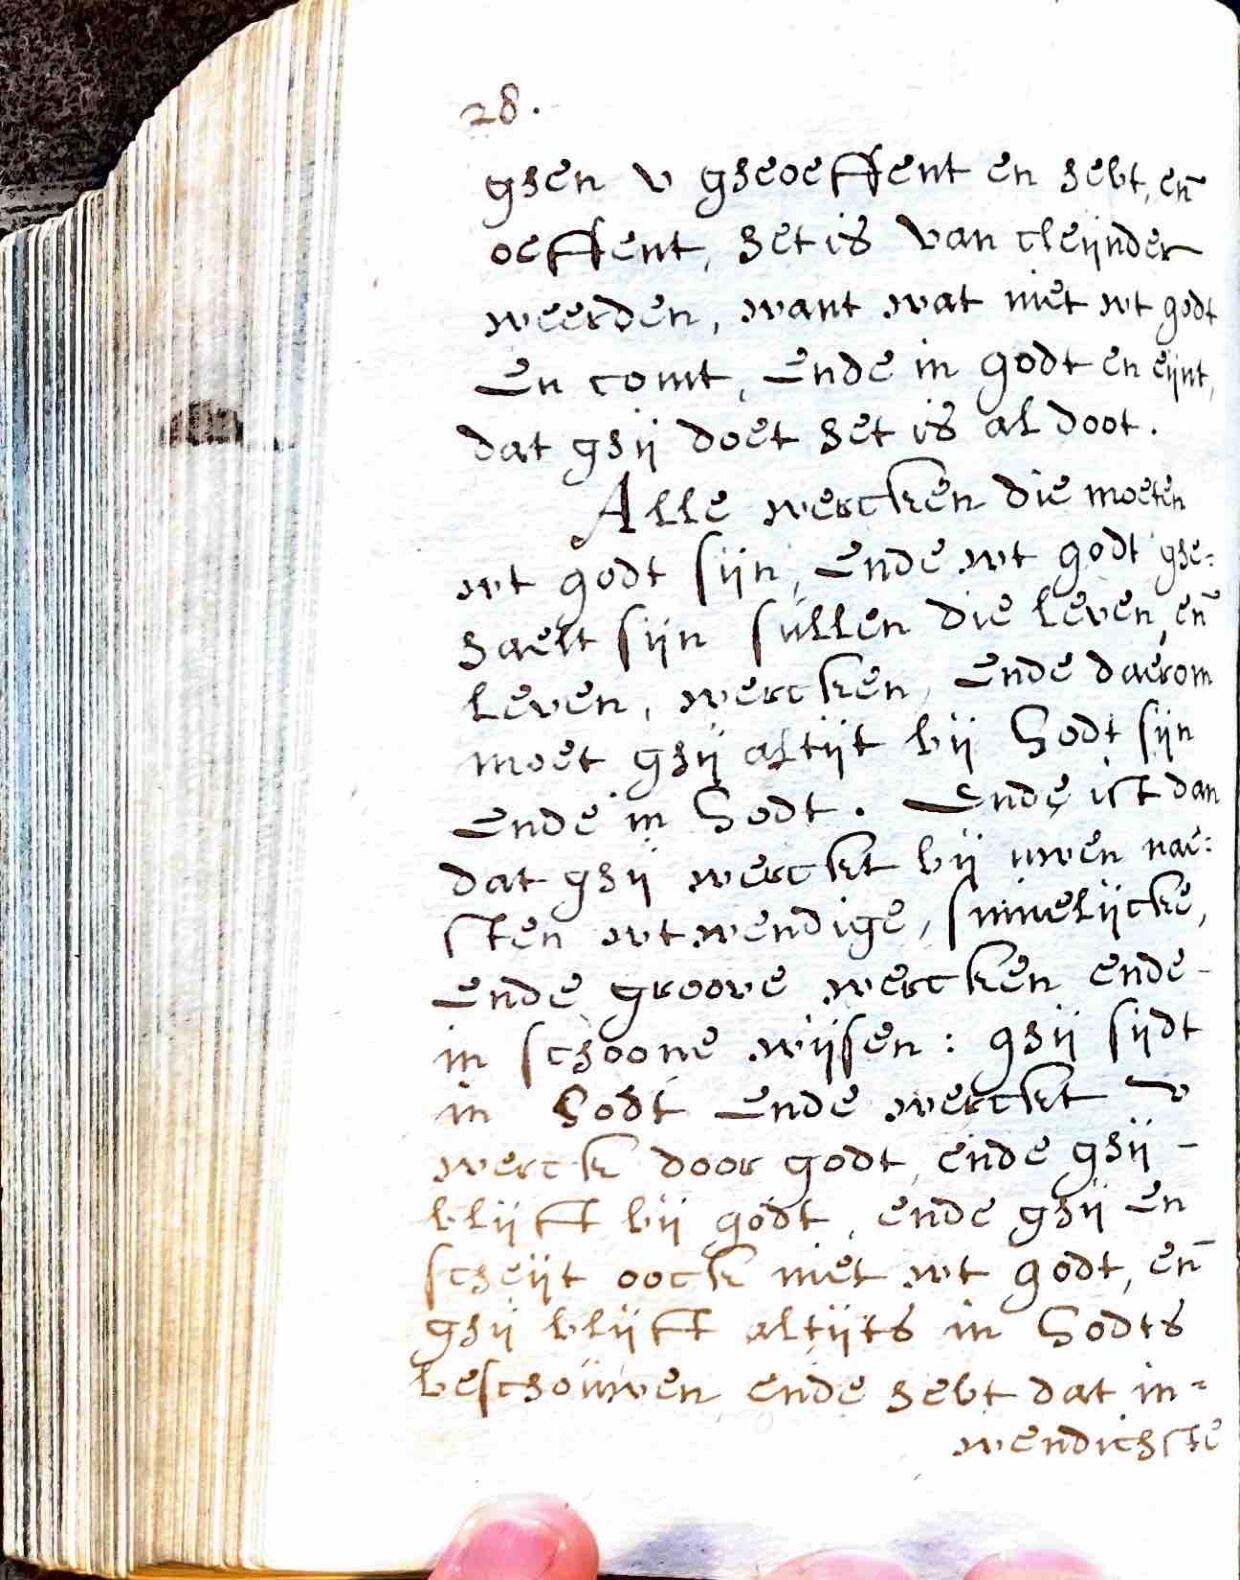 28.
ghen v gheoeffent en hebt, en̄
oeffent, het is van cleijnder
weerden, want wat niet wt godt
En comt, Ende in godt en eijnt,
dat ghij doet het is al doot.
Alle wercken die moeten
wt godt sijn, Ende wt godt ghe:
haelt sijn sullen die leven, en̄
leven, wercken, Ende daerom
moet ghij altijt bij Godt sijn
Ende in Godt. Ende ist dan
dat ghij werckt bij uwen nae:
sten wtwendige, sinnelijcke,
Ende groove wercken ende -
in schoone wijsen: ghij sijdt
in Godt Ende werckt v
werck door godt, ende ghij -
blijft bij godt, ende ghij En
scheijt oock niet wt godt, en̄
ghij blijft altijts in Godts
beschouwen ende hebt dat in=
wendichste